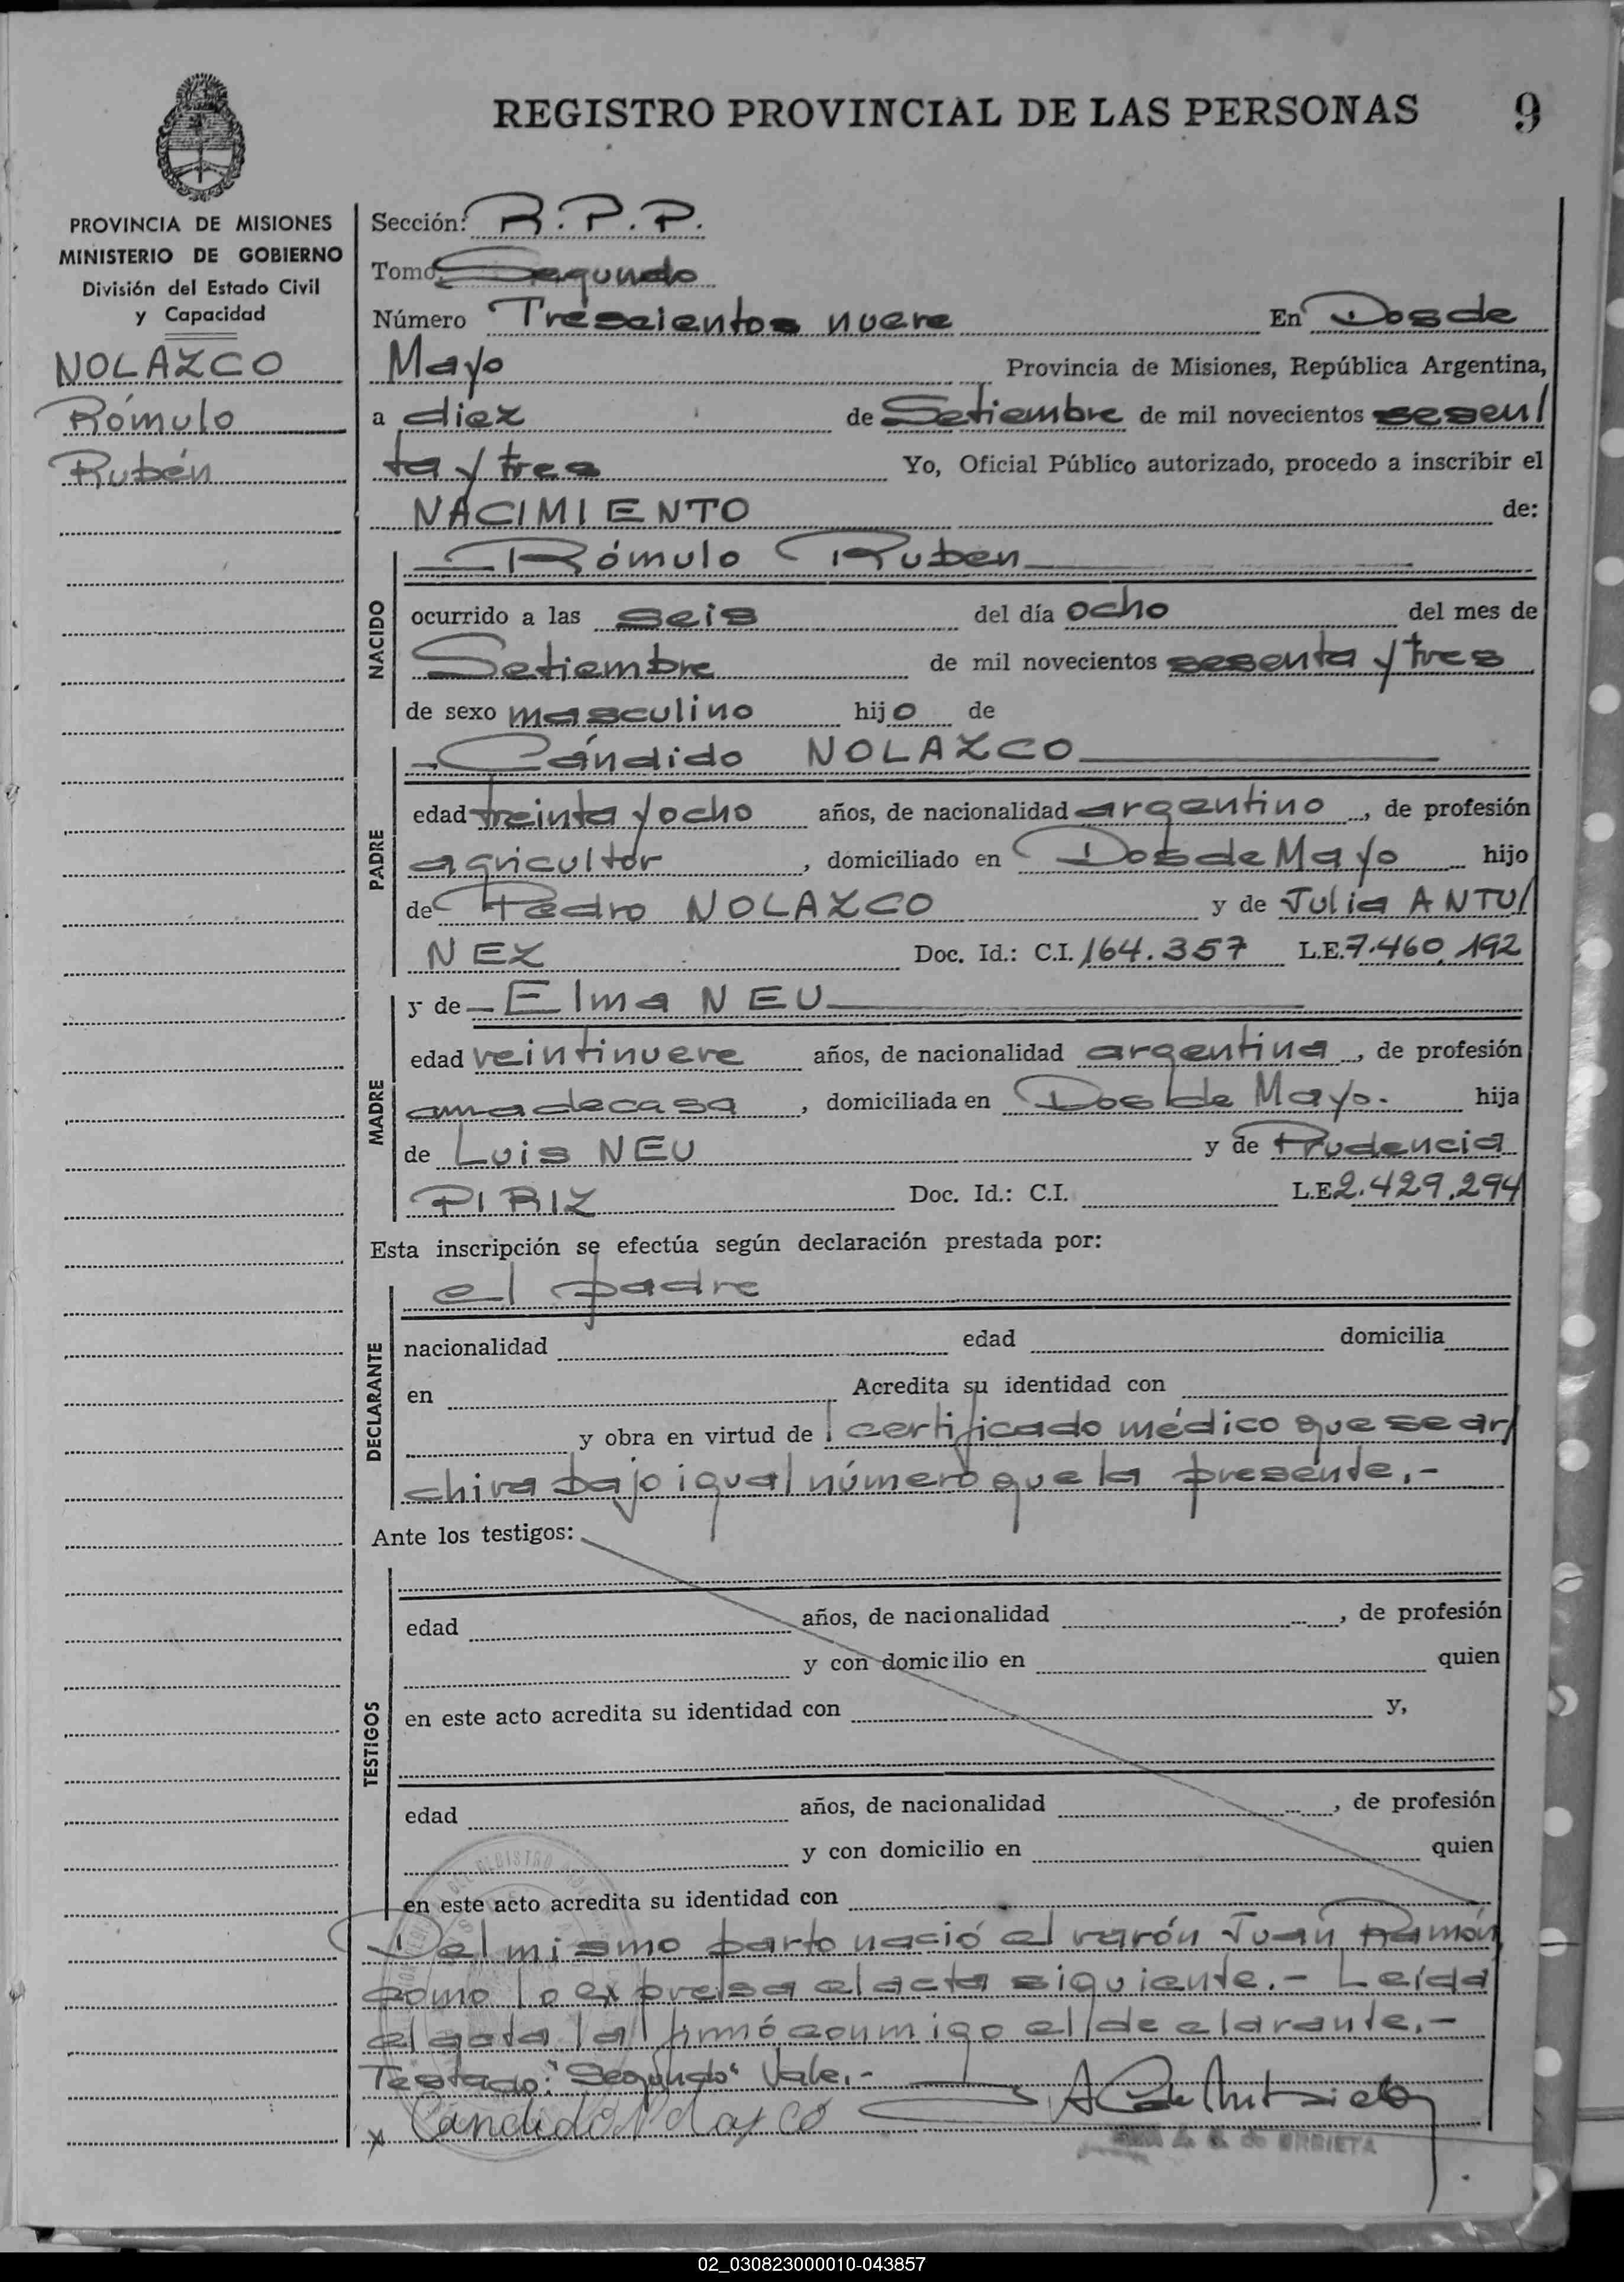 REGISTRO PROVINCIAL DE LAS PERSONAS 9
PROVINCIA DE MISIONES
MINISTERIO DE GOBIERNO
División del Estado Civil
y Capacidad
NOLAZCO
Rómulo
Rubén
Sección: R.P.P.
Tomo Segundo
Número Trescientos nueve En Dos de
Mayo Provincia de Misiones, República Argentina,
a diez de Setiembre de mil novecientos sesen/
ta y tres Yo, Oficial Público autorizado, procedo a inscribir el
NACIMIENTO de:
NACIDO
Rómulo Ruben
ocurrido a las seis del día ocho del mes de
Setiembre de mil novecientos sesenta y tres
de sexo masculino hijo de
PADRE
Cándido NOLAZCO
edad treinta y ocho años, de nacionalidad argentino, de profesión
agricultor, domiciliado en Dos de Mayo hijo
de Pedro NOLAZCO y de Julia ANTU/
NEZ Doc. Id.: C.I. 164.357 L.E. 7.460.192
MADRE
y de Elma NEU
edad veintinueve años, de nacionalidad argentina, de profesión
ama de casa, domiciliada en Dos de Mayo. hija
de Luis NEU y de Prudencia
PIRIZ Doc. Id.: C.I. L.E. 2.429.294
Esta inscripción se efectúa según declaración prestada por:
DECLARANTE
el padre
nacionalidad edad domicilia
en Acredita su identidad con
y obra en virtud de l certificado médico que se ar/
chiva bajo igual número que la presente.-
Ante los testigos:
TESTIGOS
edad años, de nacionalidad , de profesión
y con domicilio en quien
en este acto acredita su identidad con y,
edad años, de nacionalidad , de profesión
y con domicilio en quien
en este acto acredita su identidad con
Del mismo parto nació el varón Juan Ramón
como lo expresa el acta siguiente.- Leída
el acta la firmó conmigo el declarante.-
Testado: "Segundo" Vale.-
x Candido Nolazco
de URRIETA
02_030823000010-043857